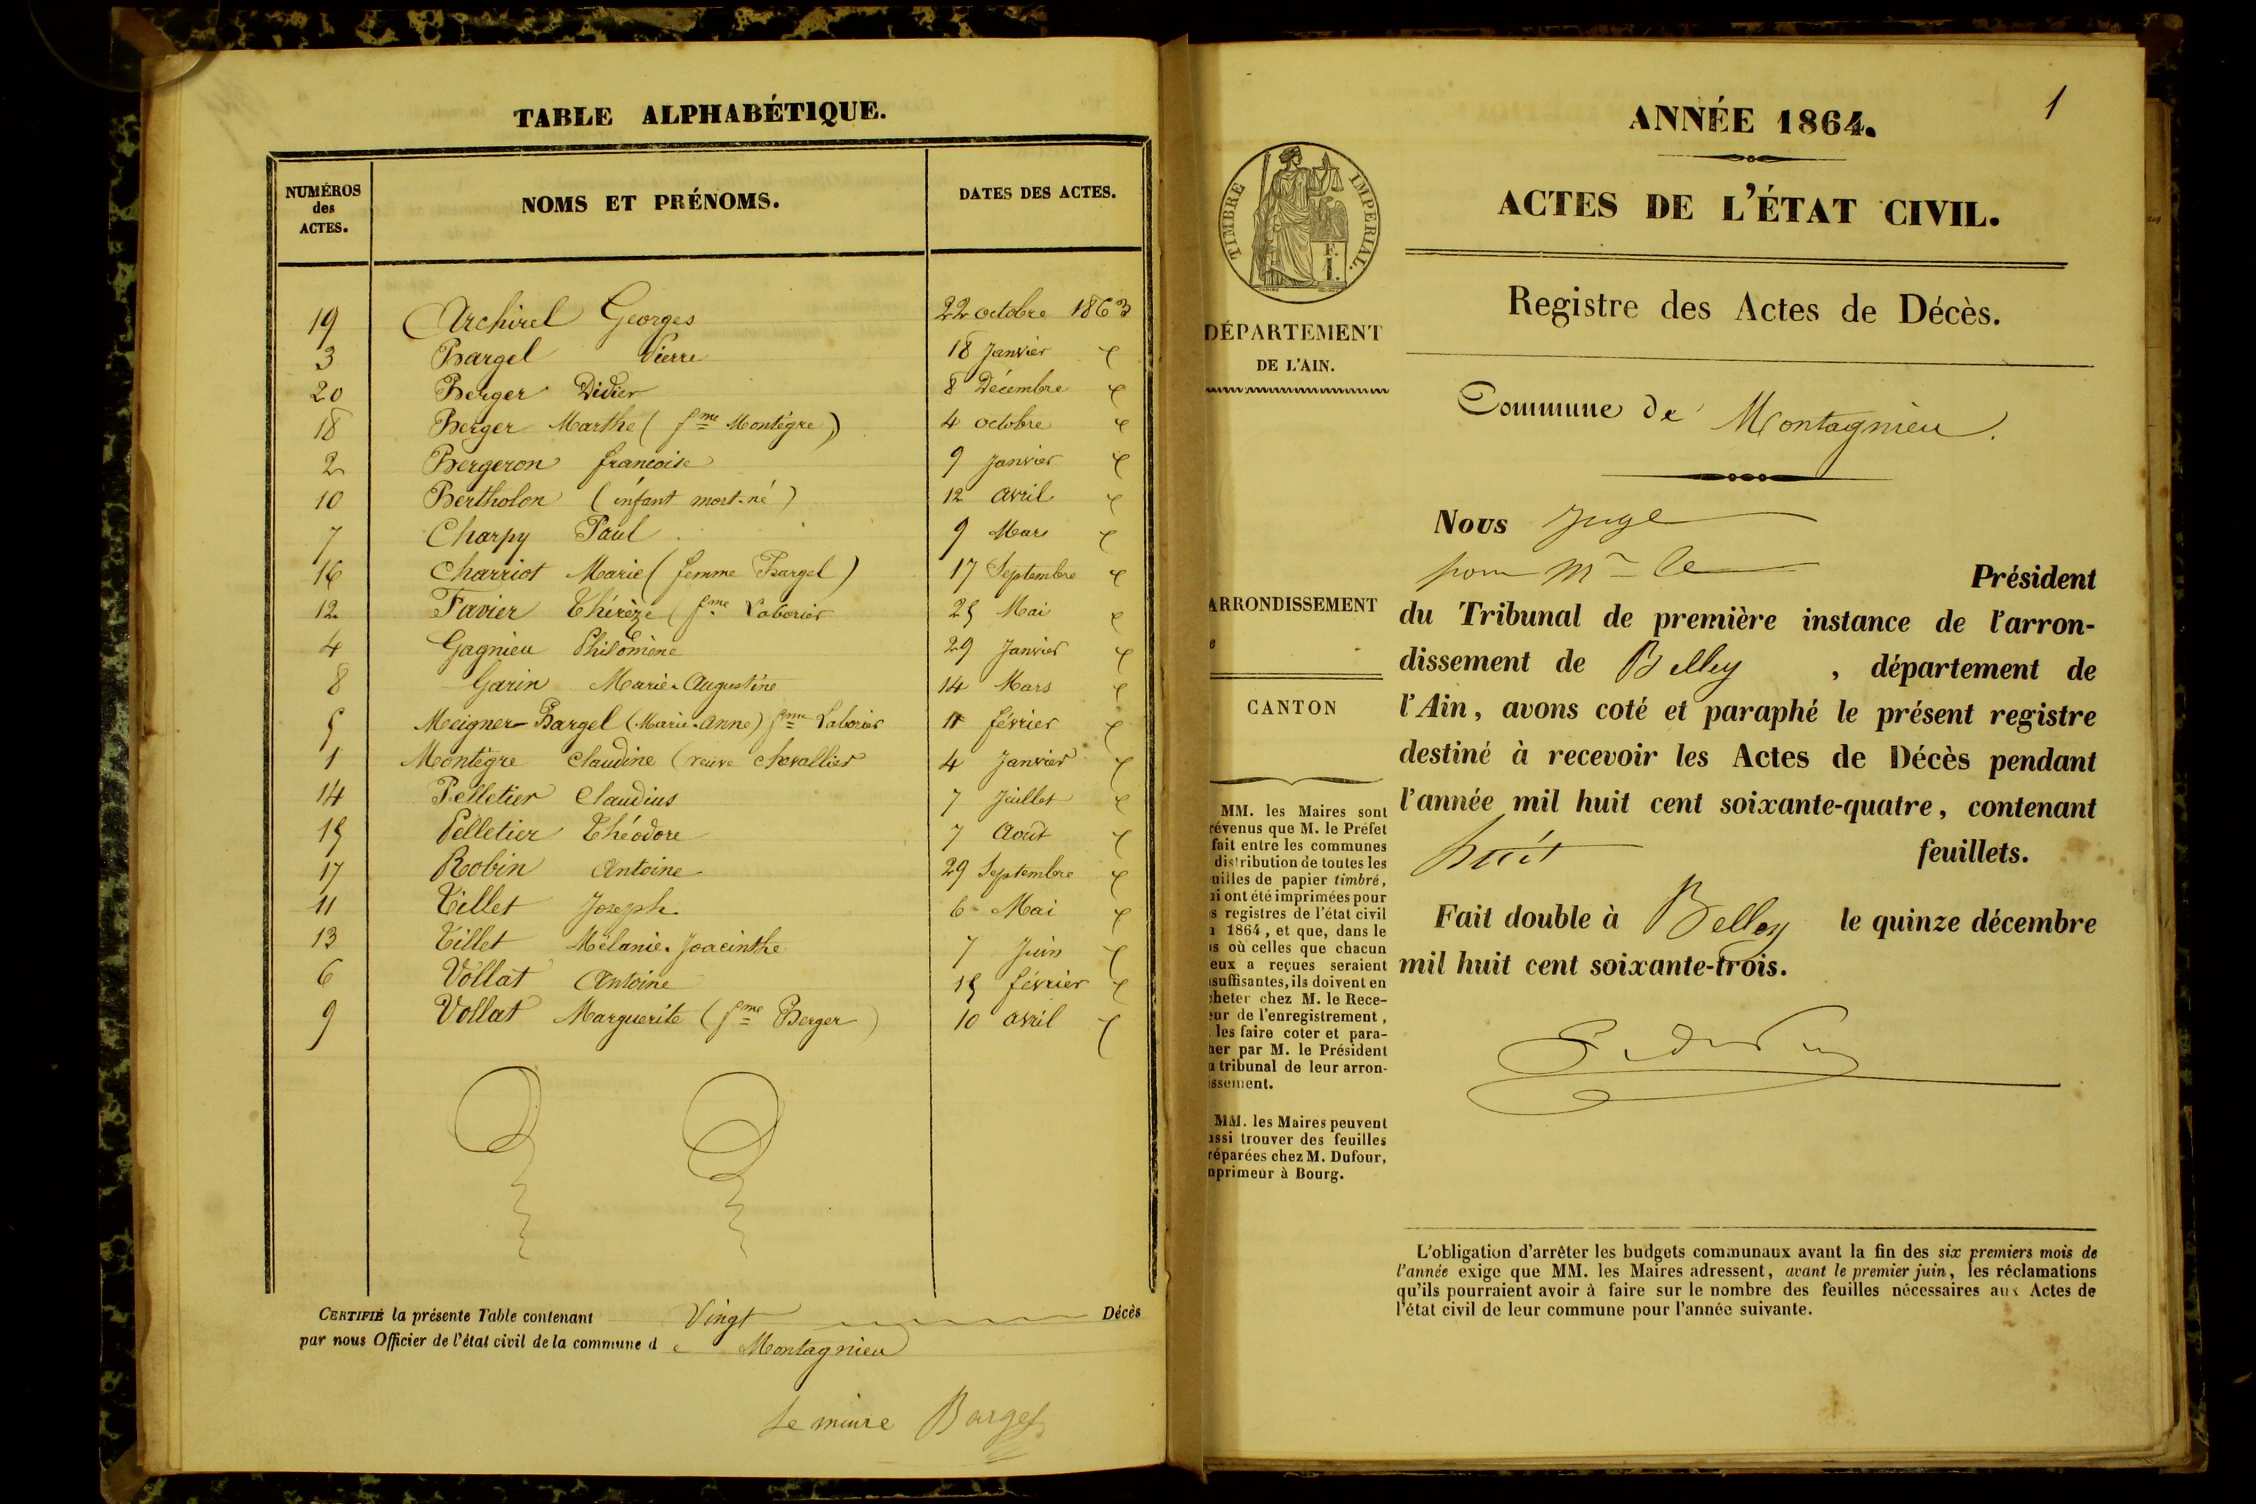 TABLE ALPHABÉTIQUE.
NUMÉROS des ACTES. NOMS ET PRÉNOMS. DATES DES ACTES.
19 Archirel Georges 22 octobre 1863
3 Bargel Pierre 18 Janvier
20 Berger Didier 8 Décembre
18 Berger Marthe (fme Montègre) 4 octobre
2 Bergeron françoise 9 Janvier
10 Bertholon (enfant mort-né) 12 avril
7 Charpy Paul 9 Mars
16 Charriot Marie (femme Bargel) 17 Septembre
12 Favier Thérèze (fme Laborier 25 Mai
4 Gagnieu Philomène 29 Janvier
8 Garin Marie-Augustine 14 Mars
5 Meigner-Bargel (Marie-Anne) fme Laborier 11 février
1 Montègre Claudine (veuve Chevallier 4 Janvier
14 Pelletier Claudius 7 Juillet
15 Pelletier Théodore 7 Août
17 Robin Antoine 29 Septembre
11 Tillet Joseph 6 Mai
13 Tillet Mélanie-Joacinthe 7 Juin
6 Vollat Antoine 15 février
9 Vollat Marguerite (fme Berger) 10 avril
CERTIFIÉ la présente Table contenant Vingt Décès
par nous Officier de l'état civil de la commune de Montagnieu
Le maire Bargel
1
ANNÉE 1864.
ACTES DE L'ÉTAT CIVIL.
Registre des Actes de Décès.
TIMBRE IMPÉRIAL.
DÉPARTEMENT
DE L'AIN.
ARRONDISSEMENT
e
CANTON
MM. les Maires sont
révenus que M. le Préfet
fait entre les communes
distribution de toutes les
uilles de papier timbré,
ui ont été imprimées pour
s registres de l'état civil
1864, et que, dans le
s où celles que chacun
eux a reçues seraient
suffisantes, ils doivent en
cheter chez M. le Rece-
eur de l'enregistrement,
les faire coter et para-
her par M. le Président
u tribunal de leur arron-
issement.
MM. les Maires peuvent
ussi trouver des feuilles
réparées chez M. Dufour,
mprimeur à Bourg.
Commune de Montagnieu.
Nous Juge
pour Mr le Président
du Tribunal de première instance de l'arron-
dissement de Belley, département de
l'Ain, avons coté et paraphé le présent registre
destiné à recevoir les Actes de Décès pendant
l'année mil huit cent soixante-quatre, contenant
huit feuillets.
Fait double à Belley le quinze décembre
mil huit cent soixante-trois.
L'obligation d'arrêter les budgets communaux avant la fin des six premiers mois de
l'année exige que MM. les Maires adressent, avant le premier juin, les réclamations
qu'ils pourraient avoir à faire sur le nombre des feuilles nécessaires aux Actes de
l'état civil de leur commune pour l'année suivante.